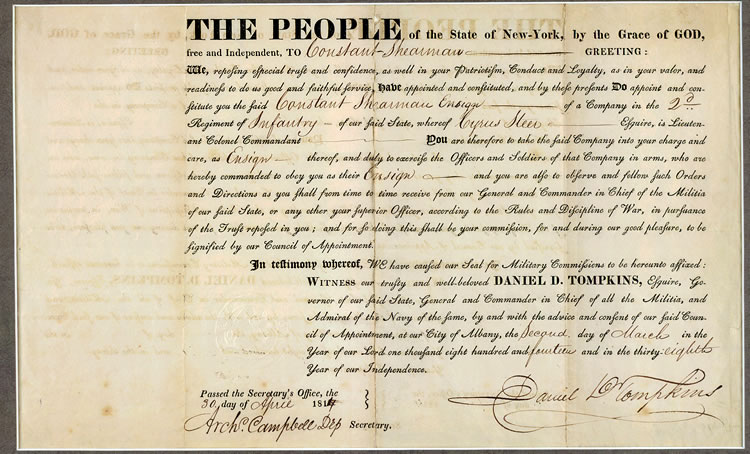 THE PEOPLE of the State of New-York, by the Grace of GOD,
free and Independent, TO Constant Shearman GREETING:
We, reposing especial trust and confidence, as well in your Patriotism, Conduct and Loyalty, as in your valor, and
readiness to do us good and faithful service, Have appointed and constituted, and by these presents Do appoint and con-
stitute you the said Constant Shearman Ensign of a Company in the 2d
Regiment of Infantry of our said State, whereof Cyrus Steer Esquire, is Lieuten-
ant Colonel Commandant You are therefore to take the said Company into your charge and
care, as Ensign thereof, and duly to exercise the Officers and Soldiers of that Company in arms, who are
hereby commanded to obey you as their Ensign and you are also to observe and follow such Orders
and Directions as you shall from time to time receive from our General and Commander in Chief of the Militia
of our said State, or any other your Superior Officer, according to the Rules and Discipline of War, in pursuance
of the Trust reposed in you; and for so doing this shall be your commission, for and during our good pleasure, to be
signified by our Council of Appointment.
In testimony whereof, We have caused our Seal for Military Commissions to be hereunto affixed:
WITNESS our trusty and well-beloved DANIEL D. TOMPKINS, Esquire, Go-
vernor of our said State, General and Commander in Chief of all the Militia, and
Admiral of the Navy of the same, by and with the advice and consent of our said Coun-
cil of Appointment, at our City of Albany, the Second day of March in the
Year of our Lord one thousand eight hundred and fourteen and in the thirty-eighth
Year of our Independence.
Passed the Secretary's Office, the
30 day of April 1814
Archd. Campbell Dep Secretary.
Daniel D Tompkins